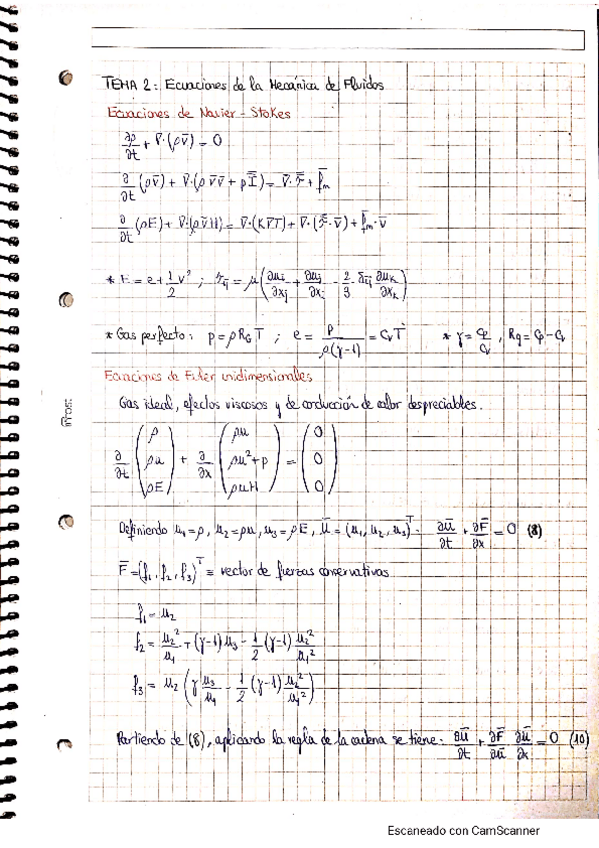 TEMA 2: Ecuaciones de la Mecánica de Fluidos
Ecuaciones de Navier-Stokes
∂ρ/∂t + ∇·(ρv̄) = 0
∂/∂t (ρv̄) + ∇·(ρv̄v̄ + pI̿) = ∇·τ̿ + f̄m
∂/∂t (ρE) + ∇·(ρv̄H) = ∇·(K∇T) + ∇·(τ̿·v̄) + f̄m·v̄
* E = e + 1/2 v² ; τij = μ(∂ui/∂xj + ∂uj/∂xi - 2/3 δij ∂uk/∂xk)
* Gas perfecto: p = ρRGT ; e = p/ρ(γ-1) = CvT * γ = Cp/Cv , Rg = Cp - Cv
Ecuaciones de Euler unidimensionales
Gas ideal, efectos viscosos y de conducción de calor despreciables.
∂/∂t (ρ, ρu, ρE) + ∂/∂x (ρu, ρu²+p, ρuH) = (0, 0, 0)
Definiendo u₁=ρ, u₂=ρu, u₃=ρE, ū = (u₁, u₂, u₃)ᵀ: ∂ū/∂t + ∂F̄/∂x = 0 (8)
F̄ = (f₁, f₂, f₃)ᵀ ≡ vector de fuerzas conservativas
f₁ = u₂
f₂ = u₂²/u₁ + (γ-1)u₃ - 1/2 (γ-1) u₂²/u₁²
f₃ = u₂ (γ u₃/u₁ - 1/2 (γ-1) u₂²/u₁²)
Partiendo de (8), aplicando la regla de la cadena se tiene: ∂ū/∂t + ∂F̄/∂ū ∂ū/∂x = 0 (10)
Escaneado con CamScanner